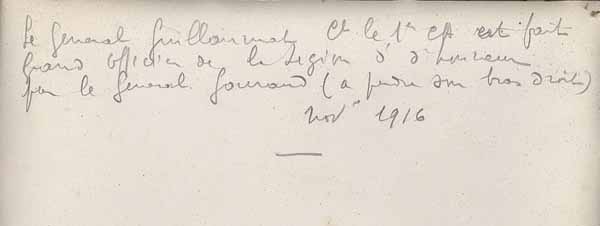 Le General Guillaumat Ct le 1er CA est fait
Grand Officier de la Legion d'honneur
par le General Gouraud (a perdu son bras droit)
Nov 1916